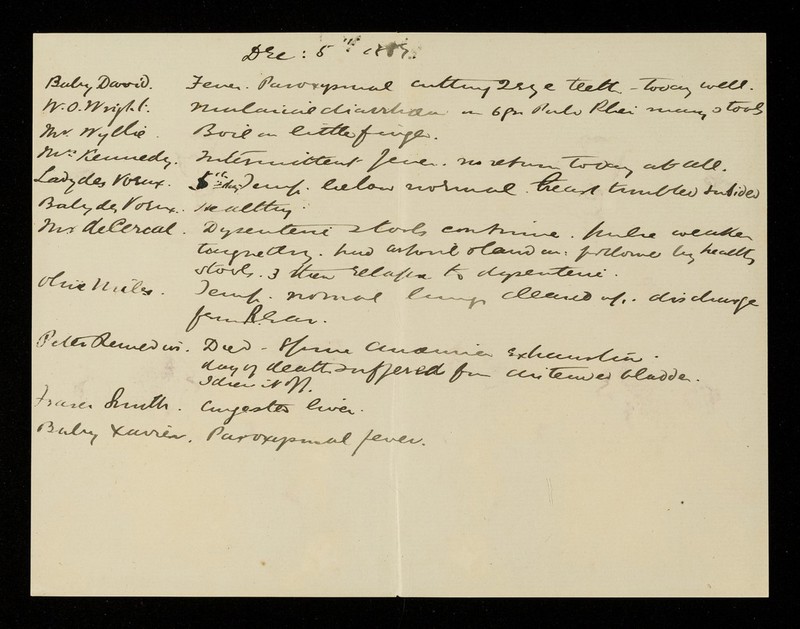 Dec: 5th
Baby David. Fever. Paroxysmal cutting 2 eye teeth - today well.
W.O. Wright. Malarial diarrhoea on 6gr Pulv Rhei many stools
Mr. Wyllie. Boil on little finger.
Mrs Kennedy. Intermittent fever. no return today at all.
Lady des Voeux. Temp. below normal. heart troubled subsided
Baby des Voeux. Healthy
Mrs de Cercal. Dysenteric stools continue. pulse weaker
had followed by healthy
stools. & then to dysenteric.
Olive Niles. Temp. normal lungs cleared up. discharge
from R. Ear.
Peter Remedios. Died - anaemia Exhaustion.
day of death suffered from distended bladder.
I drew it off.
Fraser Smith. Congested liver.
Baby Xavier. Paroxysmal fever.